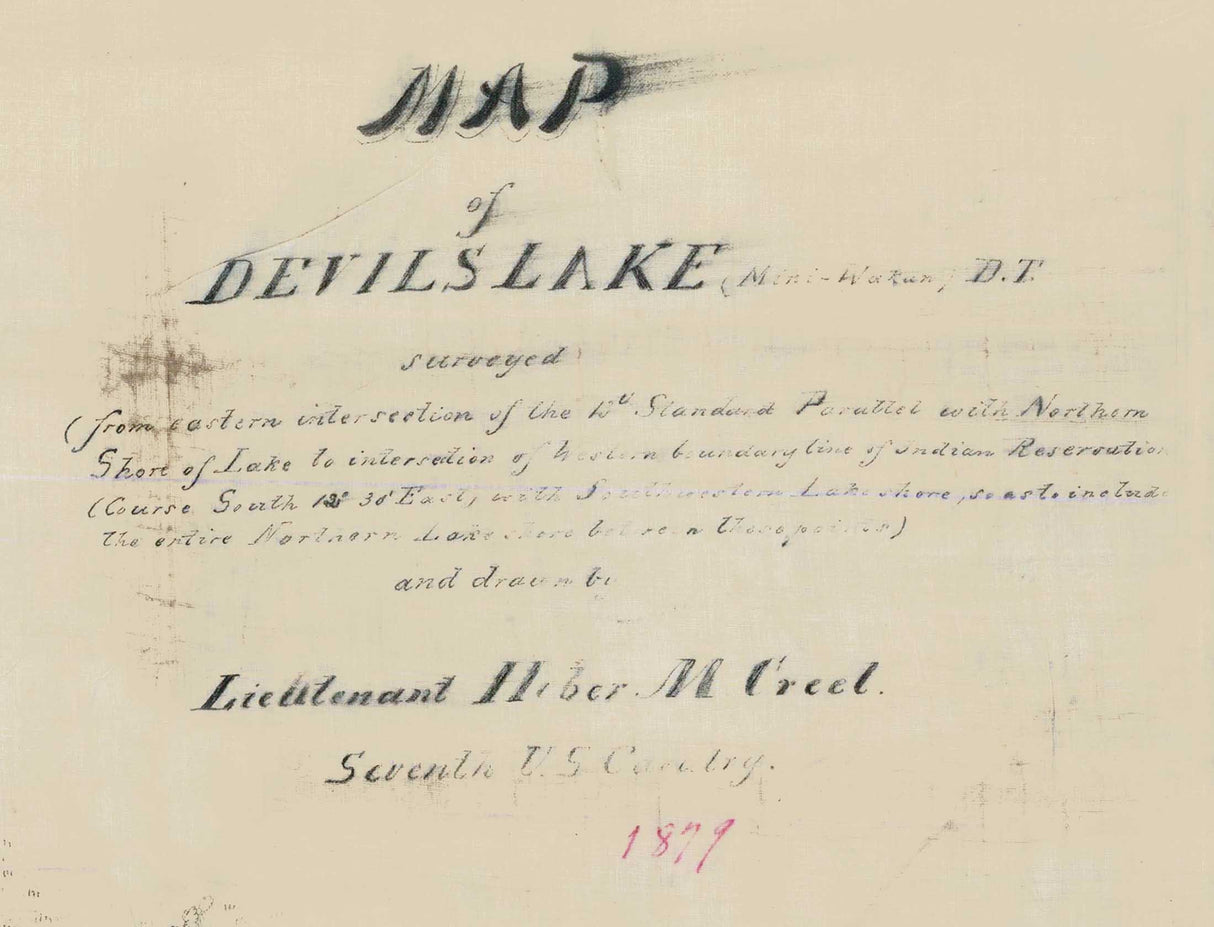 MAP
of
DEVILS LAKE (Mini-Wakan) D.T.
surveyed
(from eastern intersection of the Standard Parallel with Northern
Shore of Lake to intersection of Western boundary line of Indian Reservation
(Course South 30' East, with Southwestern Lake shore, so as to include
the entire Northern Lake shore between these points)
and drawn by
Lieutenant Heber M Creel.
Seventh U S Cavalry.
1879